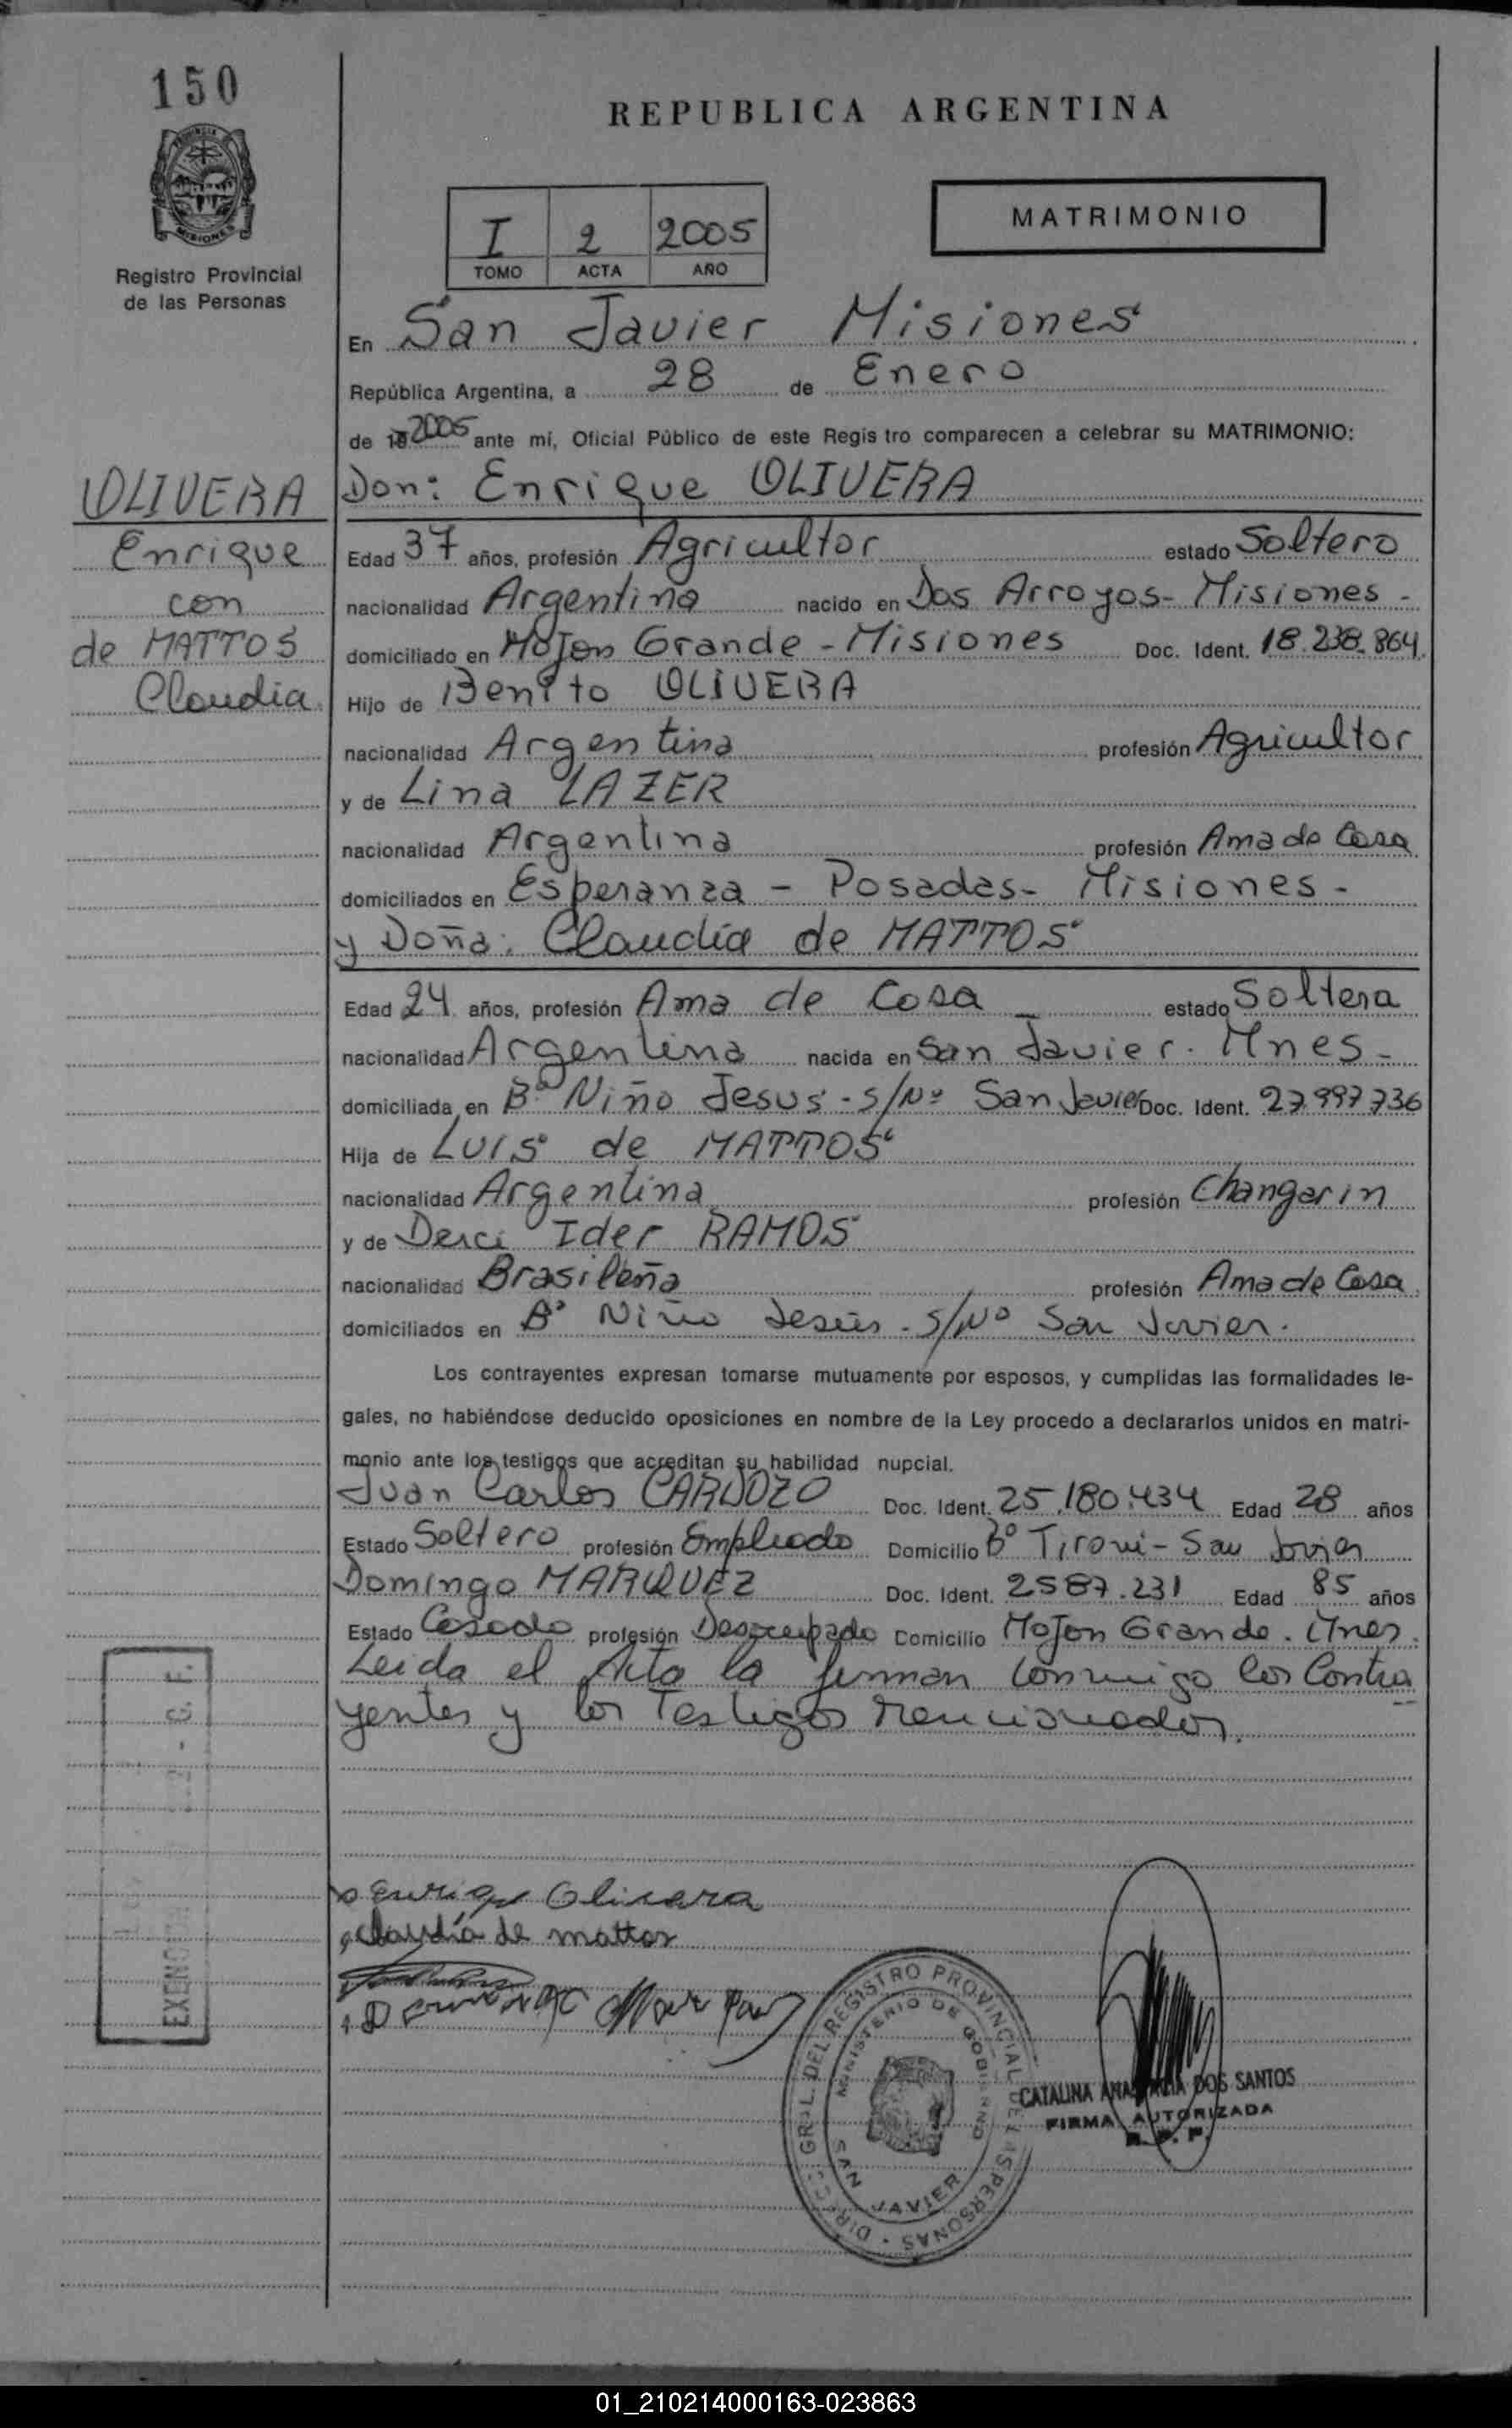 150
REPUBLICA ARGENTINA
PROVINCIA
MISIONES
Registro Provincial
de las Personas
I 2 2005
TOMO ACTA AÑO
MATRIMONIO
En San Javier Misiones
República Argentina, a 28 de Enero
de 19 2005 ante mí, Oficial Público de este Regis tro comparecen a celebrar su MATRIMONIO:
OLIVERA
Enrique
con
de MATTOS
Claudia
Don: Enrique OLIVERA
Edad 37 años, profesión Agricultor estado Soltero
nacionalidad Argentina nacido en Dos Arroyos- Misiones -
domiciliado en Mojon Grande - Misiones Doc. Ident. 18.238.864
Hijo de Benito OLIVERA
nacionalidad Argentina profesión Agricultor
y de Lina LAZER
nacionalidad Argentina profesión Ama de Casa
domiciliados en Esperanza - Posadas- Misiones -
y Doña: Claudia de MATTOS
Edad 24 años, profesión Ama de Casa estado Soltera
nacionalidad Argentina nacida en San Javier. Mnes-
domiciliada en Bº Niño Jesus - s/Nº San Javier Doc. Ident. 27.997.736
Hija de Luis de MATTOS
nacionalidad Argentina profesión Changarin
y de Derci Ider RAMOS
nacionalidad Brasileña profesión Ama de Casa
domiciliados en Bº Niño Jesús - s/Nº San Javier.
Los contrayentes expresan tomarse mutuamente por esposos, y cumplidas las formalidades le-
gales, no habiéndose deducido oposiciones en nombre de la Ley procedo a declararlos unidos en matri-
monio ante los testigos que acreditan su habilidad nupcial.
Juan Carlos CARDOZO Doc. Ident. 25.180.434 Edad 28 años
Estado Soltero profesión Empleado Domicilio Bº Tironi - San Javier
Domingo MARQUEZ Doc. Ident. 2587.231 Edad 85 años
Estado Casado profesión Desocupado Domicilio Mojon Grande. Mnes.
Leida el Acta la firman conmigo los Contra
yentes y los Testigos mencionados.
Enrique Olivera
Claudia de mattos
DIRECC. GRAL. DEL REGISTRO PROVINCIAL DE LAS PERSONAS
MINISTERIO DE GOBIERNO
SAN JAVIER
CATALINA DOS SANTOS
FIRMA AUTORIZADA
R. P. P.
01_210214000163-023863